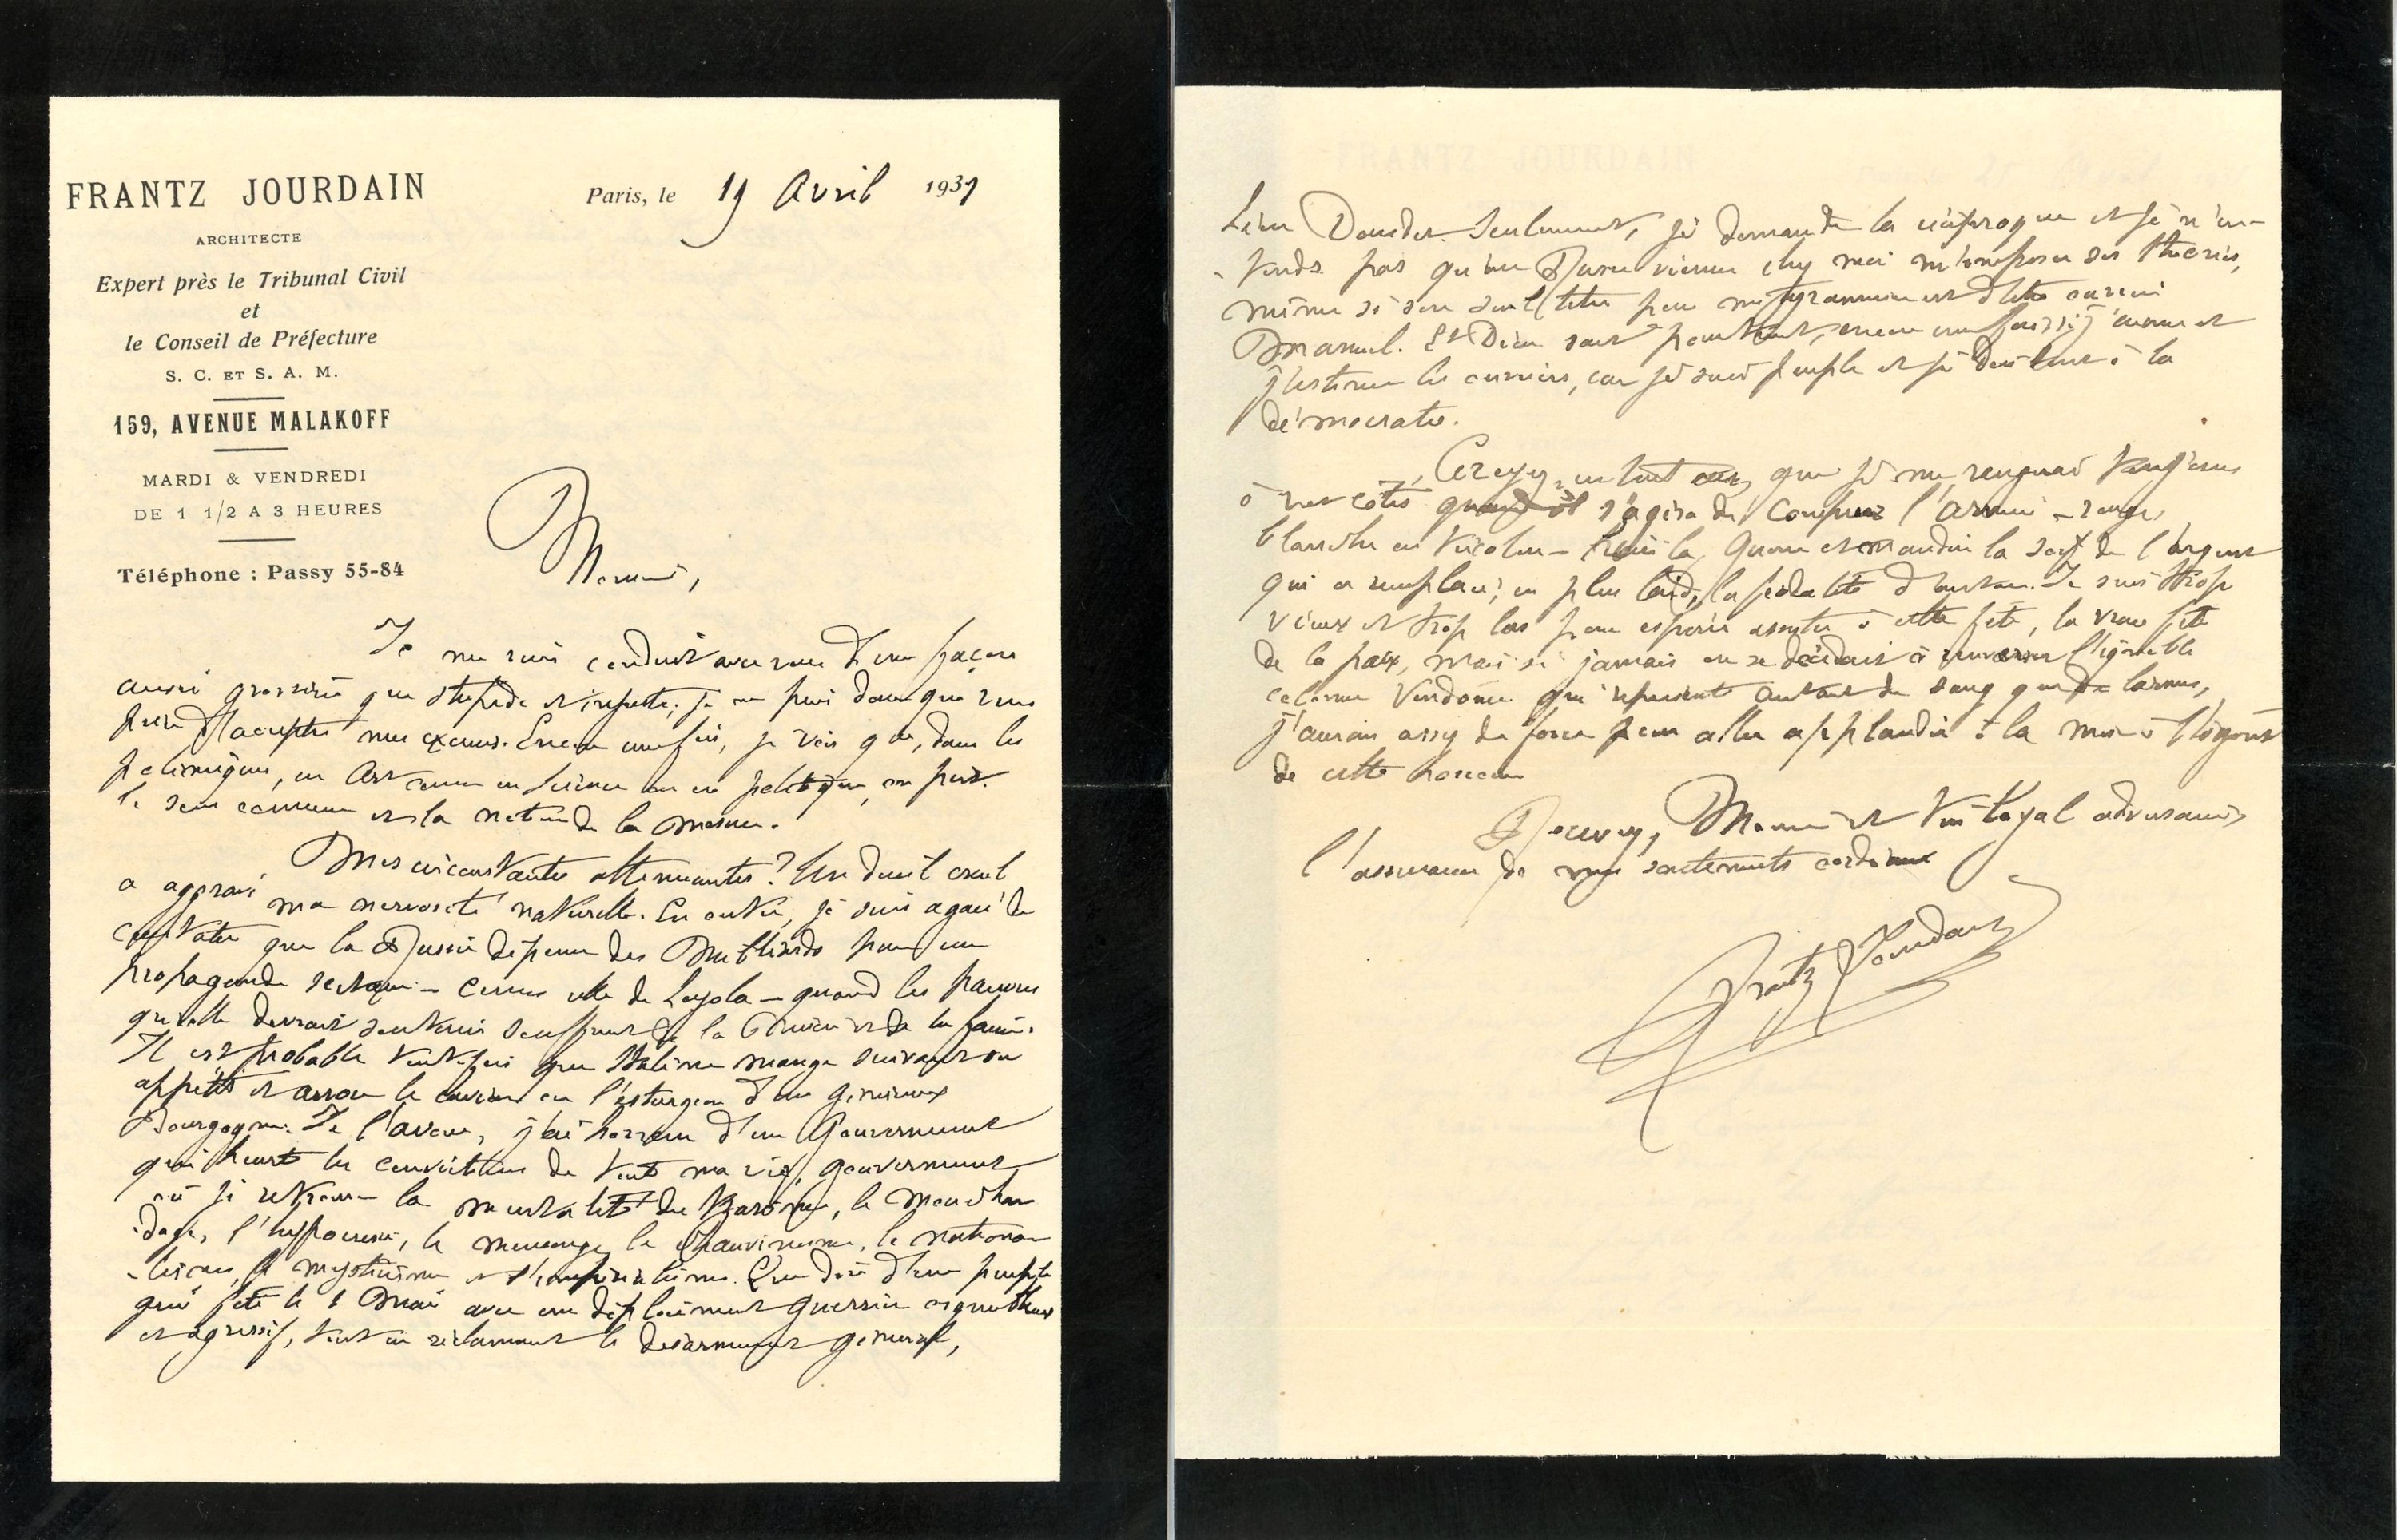 FRANTZ JOURDAIN
ARCHITECTE
Expert près le Tribunal Civil
et
le Conseil de Préfecture
S. C. ET S. A. M.
159, AVENUE MALAKOFF
MARDI & VENDREDI
DE 1 1/2 A 3 HEURES
Téléphone : Passy 55-84
Paris, le 19 Avril 1931
Monsieur,
Je me suis conduit avec vous d'une façon
aussi grossière que stupide et injuste; je ne puis donc que vous
prier d'accepter mes excuses. Encore une fois, je vois que, dans les
polémiques, en Art comme en Science ou en politique, on perd
le sens commun et la notion de la mesure.
Mes circonstantes attenuantes? Un deuil cruel
a aggravé ma nervosité naturelle. En outre, je suis agacé de
constater que la Russie dépense des Milliards pour une
propagande sectaire – comme celle de Loyola – quand les pauvres
qu'elle devrait soutenir souffrent de la misère et de la faim.
Il est probable toutefois que Staline mange suivant son
appétit et arrose le caviar ou l'esturgeon d'un généreux
Bourgogne. Je l'avoue, j'ai horreur d'un Gouvernement
qui heurte les convictions de toute ma vie, gouvernement
où je retrouve la mentalité du tzarisme, le mouchar-
-dage, l'hypocrisie, le mensonge, le chauvinisme, le nationa-
-lisme, le mysticisme et l'impérialisme. Que dire d'un peuple
qui fête le 1 Mai avec un déploiement guerrier orgueilleux
et agressif, tout en réclamant le désarmement général,
Seulement, je demande la réciproque et je n'en-
-tends pas qu'un Russe vienne chez moi m'imposer ses théories,
même si son seul titre pour me tyranniser est d'être ouvrier
Manuel. Et Dieu sait pourtant, encore une fois, si j'aime et
j'estime les ouvriers, car je suis peuple et je dois tout à la
démocratie.
Croyez, en tout cas, que je me rangerai toujours
à vos côtés quand il s'agira de l'armée – rouge,
blanche ou tricolore – la guerre et maudire la soif de l'argent
qui a remplacé, en plus laid, la féodalité d'antan. Je suis trop
vieux et trop las pour espérer assister à cette fête, la vraie fête
de la paix, mais si jamais on se décidait à renverser l'ignoble
colonne Vendôme qui représente autant de sang que de larmes,
j'aurais assez de force pour aller applaudir à la mise à l'égout
de cette horreur
Recevez, Monsieur et très loyal adversaire,
l'assurance de mes sentiments cordiaux
Frantz Jourdain